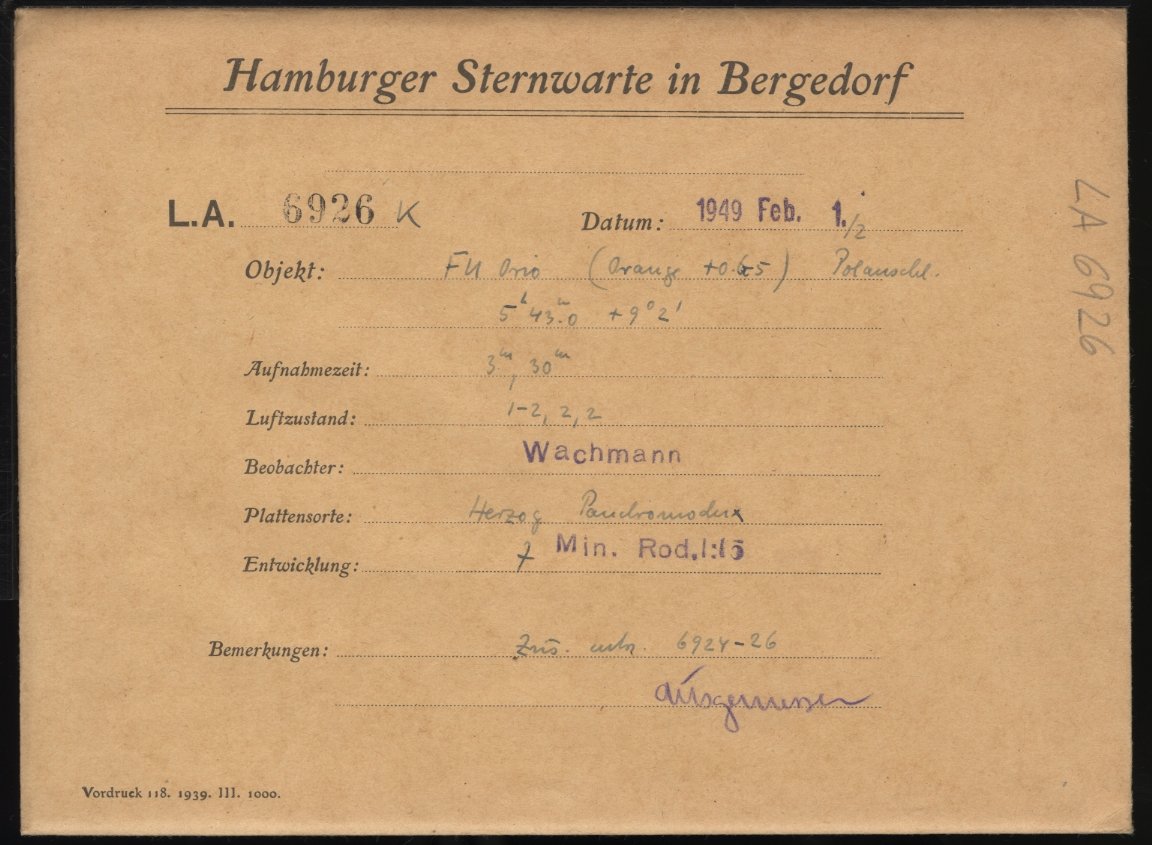 Hamburger Sternwarte in Bergedorf
L.A. 6926 K Datum: 1949 Feb. 1./2
Objekt: FU Orio (Orange +0.65) Polanschl.
5h 43m.0 +9° 2'
Aufnahmezeit: 3m, 30m
Luftzustand: 1-2, 2, 2
Beobachter: Wachmann
Plattensorte: Herzog
Entwicklung: 7 Min. Rod.1:15
Bemerkungen: Zus. 6924-26
ausgemessen
Vordruck 118. 1939. III. 1000.
LA 6926